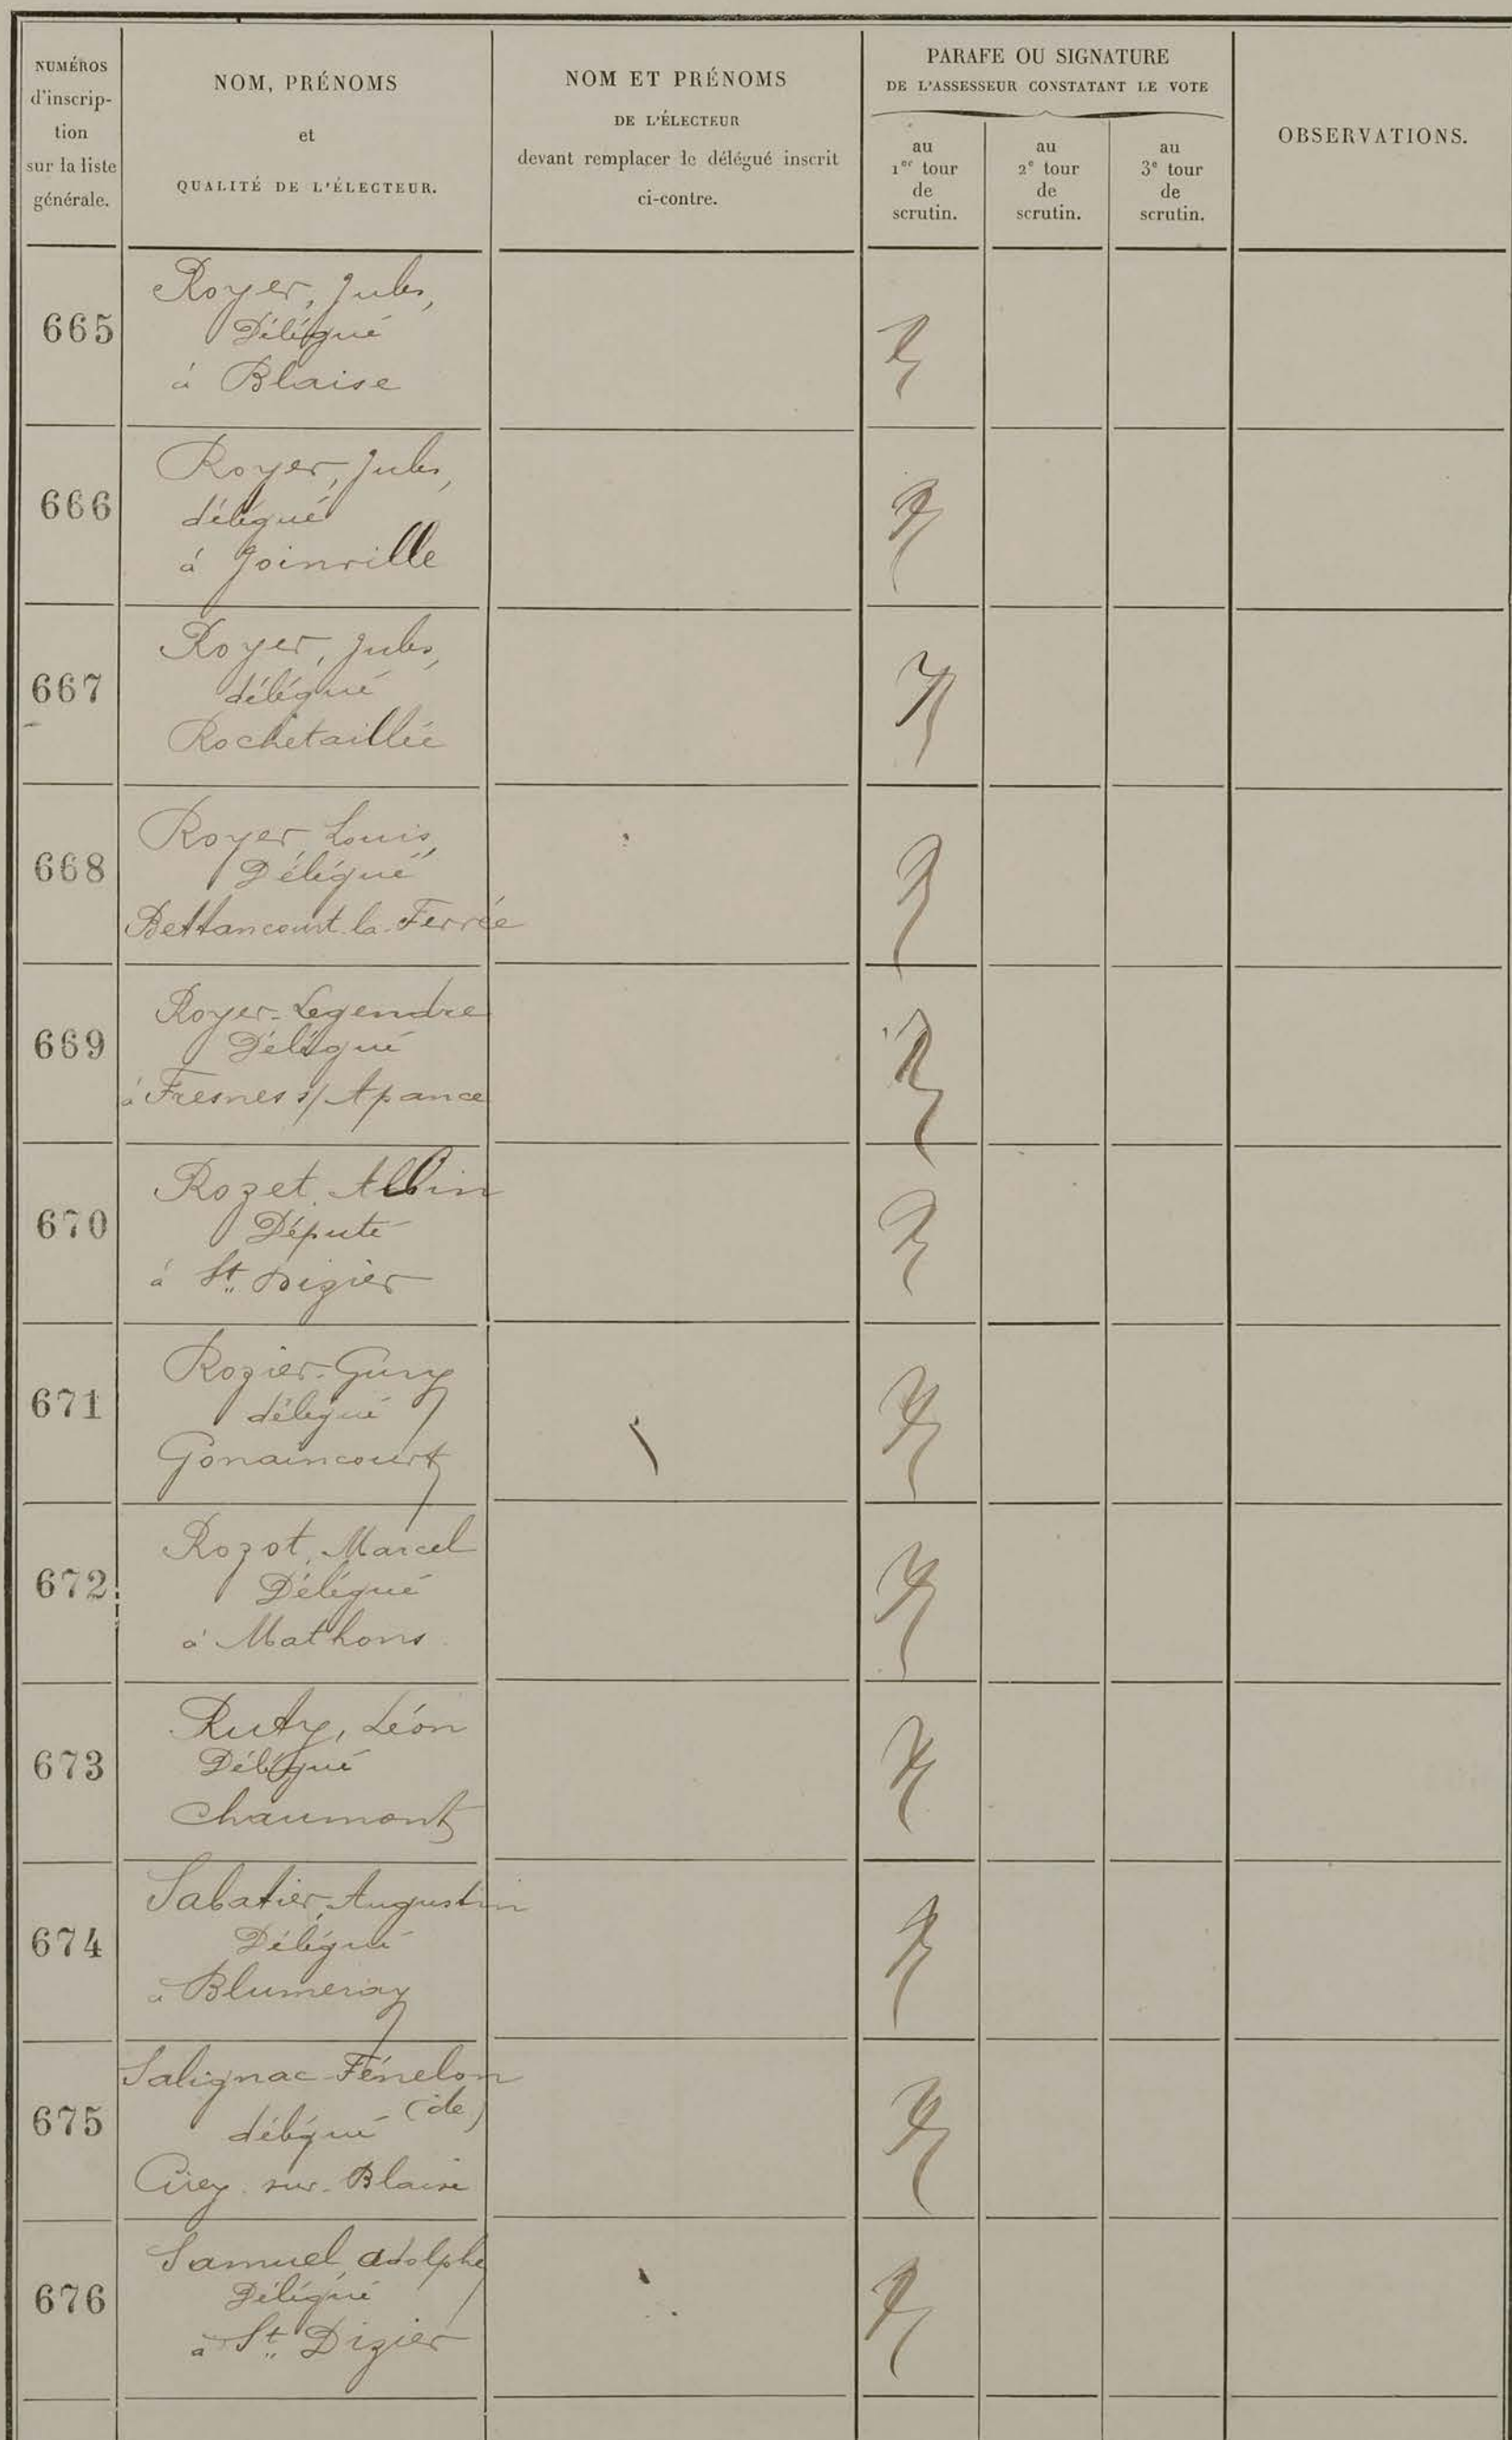 NUMÉROS
d'inscrip-
tion
sur la liste
générale.
NOM, PRÉNOMS
et
QUALITÉ DE L'ÉLECTEUR.
NOM ET PRÉNOMS
DE L'ÉLECTEUR
devant remplacer le délégué inscrit
ci-contre.
PARAFE OU SIGNATURE
DE L'ASSESSEUR CONSTATANT LE VOTE
au
1er tour
de
scrutin.
au
2e tour
de
scrutin.
au
3e tour
de
scrutin.
OBSERVATIONS.
665
Royer, Jules,
Délégué
à Blaise
666
Royer, Jules,
délégué
à Joinville
667
Royer, Jules,
délégué
Rochetaillée
668
Royer, Louis,
Délégué
Bettancourt-la-Ferrée
669
Royer-Legendre
Délégué
à Fresnes s/ Apance
670
Rozet, Albin
Député
à St. Dizier
671
Rozier-Guny
délégué
Gonaincourt
672
Rozot, Marcel
Délégué
à Mathons
673
Ruty, Léon
Délégué
Chaumont
674
Sabatier, Augustin
Délégué
à Blumeray
675
Salignac-Fénelon
(de)
délégué
Cirey-sur-Blaise
676
Samuel, Adolphe
Délégué
à St. Dizier